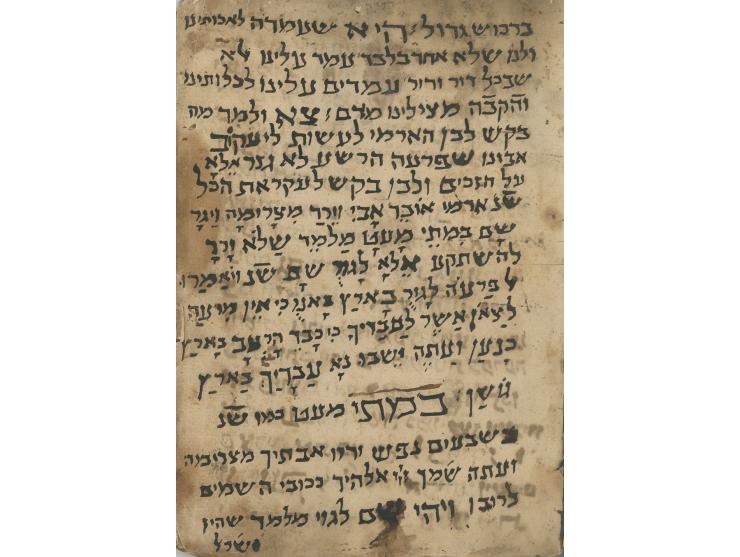 ברכוש גדול: היא שעמדה לאבותינו
ולנו שלא אחד בלבד עמד עלינו לא
שבכל דור ודור עמדים עלינו לכלותינו
והקבה מצילינו מדם: צא ולמד מה
בקש לבן הארמי לעשות ליעקוב
אבינו שפרעה הרשע לא גזר אלא
על הזכרים ולבן בקש לעקר את הכל
שנ ארמי אובד אבי וירד מצרימה ויגר
שם במתי מעט מלמד שלא ירד
להשתקע אלא לגור שם שנ ויאמרו
ל פרעה לגור בארץ באנו כי אין מרעה
לצאן אשר לעבדיך כי כבד הרעב בארץ
כנען ועתה ישבו נא עבדיך בארץ
גשן: במתי מעט כמו שנ
בשבעים נפש ירדו אבתיך מצרימה
ועתה שמך אלהיך ככוכבי השמים
לרוב: ויהי שם לגוי מלמד שהיו
ישראל